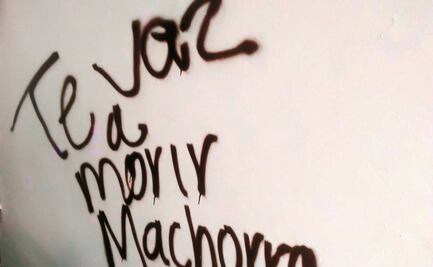 Te vaz
a
morir
Machorra